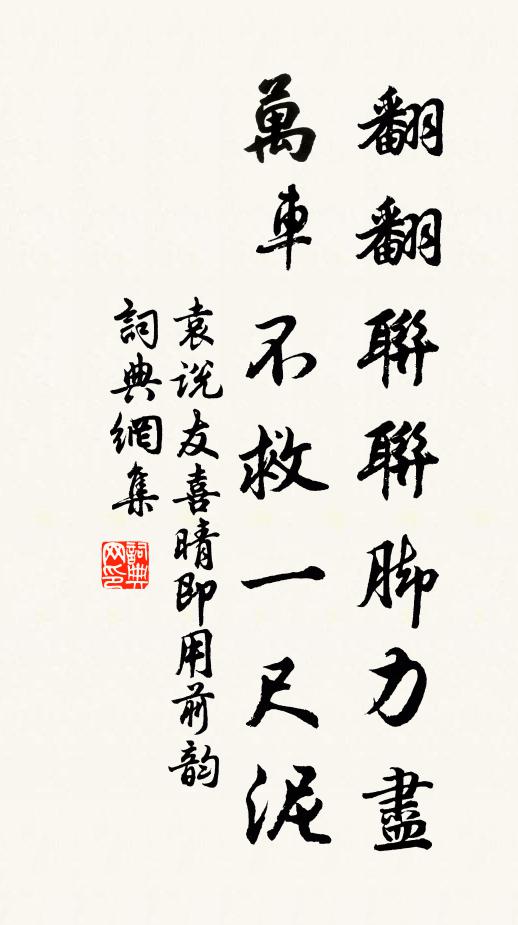 翻翻聯聯脚力盡
萬車不救一尺泥
袁说友喜晴即用前韵
詞典網集
詞典网印